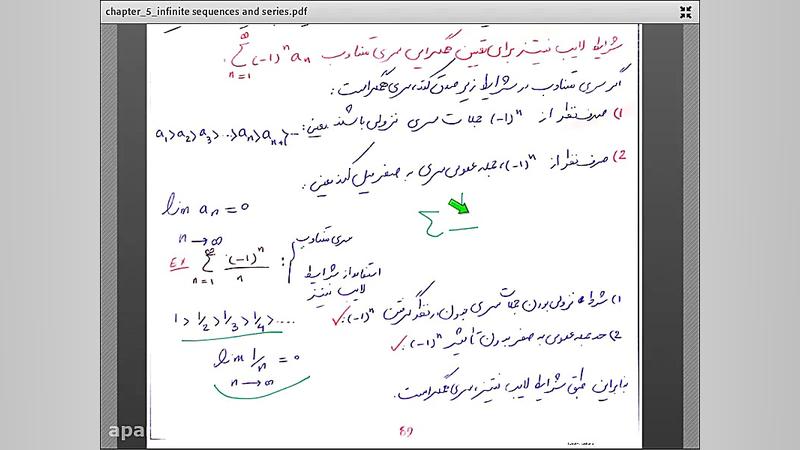 chapter_5_infinite sequences and series.pdf
شرایط لایب نیتز برای تعیین همگرایی سری متناوب ∑_{n=1}^{∞} (-1)^n a_n .
اگر سری متناوب در شرایط زیر صدق کند، سری همگراست:
1) صرف نظر از (-1)^n جملات سری نزولی باشند یعنی: a₁>a₂>a₃>...>a_n>a_{n+1}>...
2) صرف نظر از (-1)^n، جمله عمومی سری به صفر میل کند یعنی:
lim a_n = 0
n→∞
∑ —
Ex ∑_{n=1}^{∞} (-1)^n / n :
سری متناوب
استفاده از شرایط
لایب نیتز
1) شرط نزولی بودن جملات سری بدون در نظر گرفتن (-1)^n: ✓
1 > 1/2 > 1/3 > 1/4 > ....
2) حد جمله عمومی به صفر بدون تأثیر (-1)^n: ✓
lim 1/n = 0
n→∞
بنابراین طبق شرایط لایب نیتز، سری همگراست.
89
apa